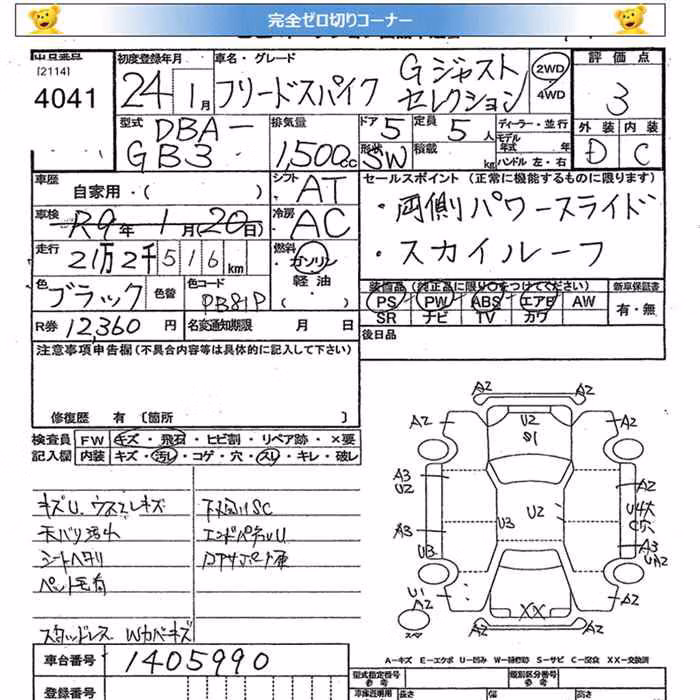 完全ゼロ切りコーナー
出品番号 初度登録年月 車名・グレード 評価点
[2114]
4041 24 1月 フリードスパイク Gジャスト セレクション 2WD 4WD 3
型式 排気量 ドア 定員 ディーラー・並行 外装 内装
DBA-GB3 1,500cc 5 5人 モデル年式 年
形状 SW 積載 kg ハンドル 左・右 D C
車歴 自家用・( ) シフト AT セールスポイント (正常に機能するものに限ります)
車検 R9年 1月 20日 冷房 AC ・両側パワースライド
走行 21万2千516km 燃料 ガソリン 軽油 ・( ) ・スカイルーフ
色 ブラック 色替 色コード PB81P 装備品(純正品に限り○をつけてください) 新車保証書
PS PW ABS エアB AW 有・無
R券 12,360円 名変通知期限 月 日 SR ナビ TV カワ
注意事項申告欄(不具合内容等は具体的に記入して下さい) 後日品
修復歴 有 〔箇所 〕
検査員 FW キズ・飛石・ヒビ割・リペア跡・×要
記入欄 内装 キズ・汚レ・コゲ・穴・スレ・キレ・破レ
キズU.ウスエレキズ 下廻りSC
天バリ汚れ エンドパネルU
シートヘタリ コアサポート
ペット毛有
スタッドレス Wカバーキズ
A2 A2
A2 U2 A2
S1
A3 A2
U2
U2 U4大
U3 C穴
A3 A3
U3 UA2
U1
A2 XX A2
A2 A2
A-キズ E-エクボ U-凹み W-補修跡 S-サビ C-腐食 XX-交換済
車台番号 1405990 型式指定番号 参考 類別区分番号 参考
登録番号 車庫証明用 参考 長さ 幅 高さ